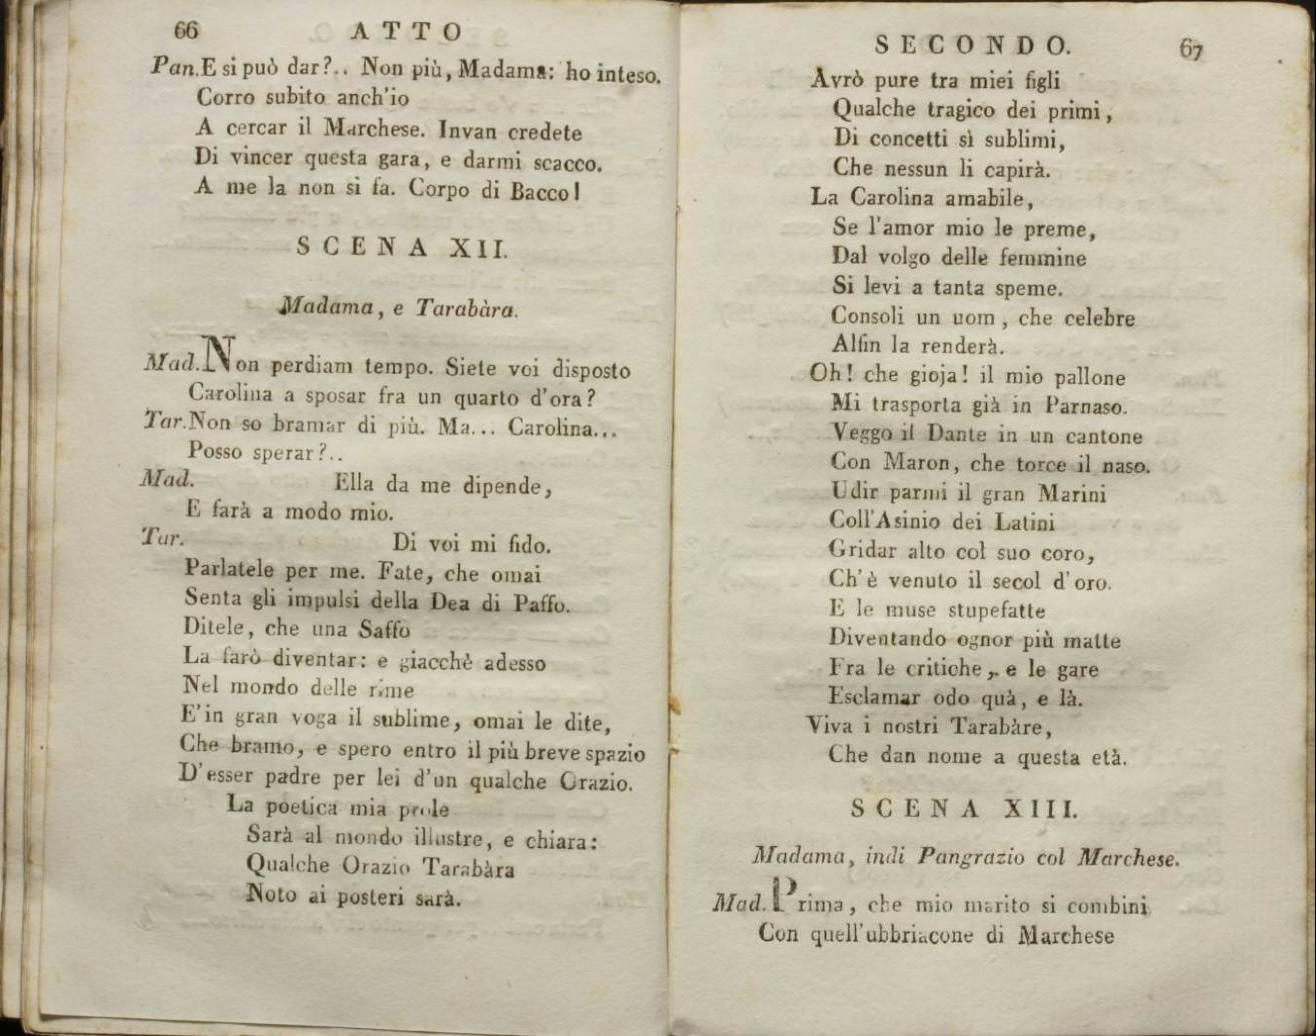 66 ATTO
Pan. E si può dar?.. Non più, Madama: ho inteso.
Corro subito anch'io
A cercar il Marchese. Invan credete
Di vincer questa gara, e darmi scacco.
A me la non si fa. Corpo di Bacco!
SCENA XII.
Madama, e Tarabàra.
Mad. Non perdiam tempo. Siete voi disposto
Carolina a sposar fra un quarto d'ora?
Tar. Non so bramar di più. Ma... Carolina...
Posso sperar?..
Mad. Ella da me dipende,
E farà a modo mio.
Tar. Di voi mi fido.
Parlatele per me. Fate, che omai
Senta gli impulsi della Dea di Paffo.
Ditele, che una Saffo
La farò diventar: e giacchè adesso
Nel mondo delle rime
E' in gran voga il sublime, omai le dite,
Che bramo, e spero entro il più breve spazio
D'esser padre per lei d'un qualche Orazio.
La poetica mia prole
Sarà al mondo illustre, e chiara:
Qualche Orazio Tarabàra
Noto ai posteri sarà.
SECONDO. 67
Avrò pure tra miei figli
Qualche tragico dei primi,
Di concetti sì sublimi,
Che nessun li capirà.
La Carolina amabile,
Se l'amor mio le preme,
Dal volgo delle femmine
Si levi a tanta speme.
Consoli un uom, che celebre
Alfin la renderà.
Oh! che gioja! il mio pallone
Mi trasporta già in Parnaso.
Veggo il Dante in un cantone
Con Maron, che torce il naso.
Udir parmi il gran Marini
Coll'Asinio dei Latini
Gridar alto col suo coro,
Ch'è venuto il secol d'oro.
E le muse stupefatte
Diventando ognor più matte
Fra le critiche, e le gare
Esclamar odo quà, e là.
Viva i nostri Tarabàre,
Che dan nome a questa età.
SCENA XIII.
Madama, indi Pangrazio col Marchese.
Mad. Prima, che mio marito si combini
Con quell'ubbriacone di Marchese